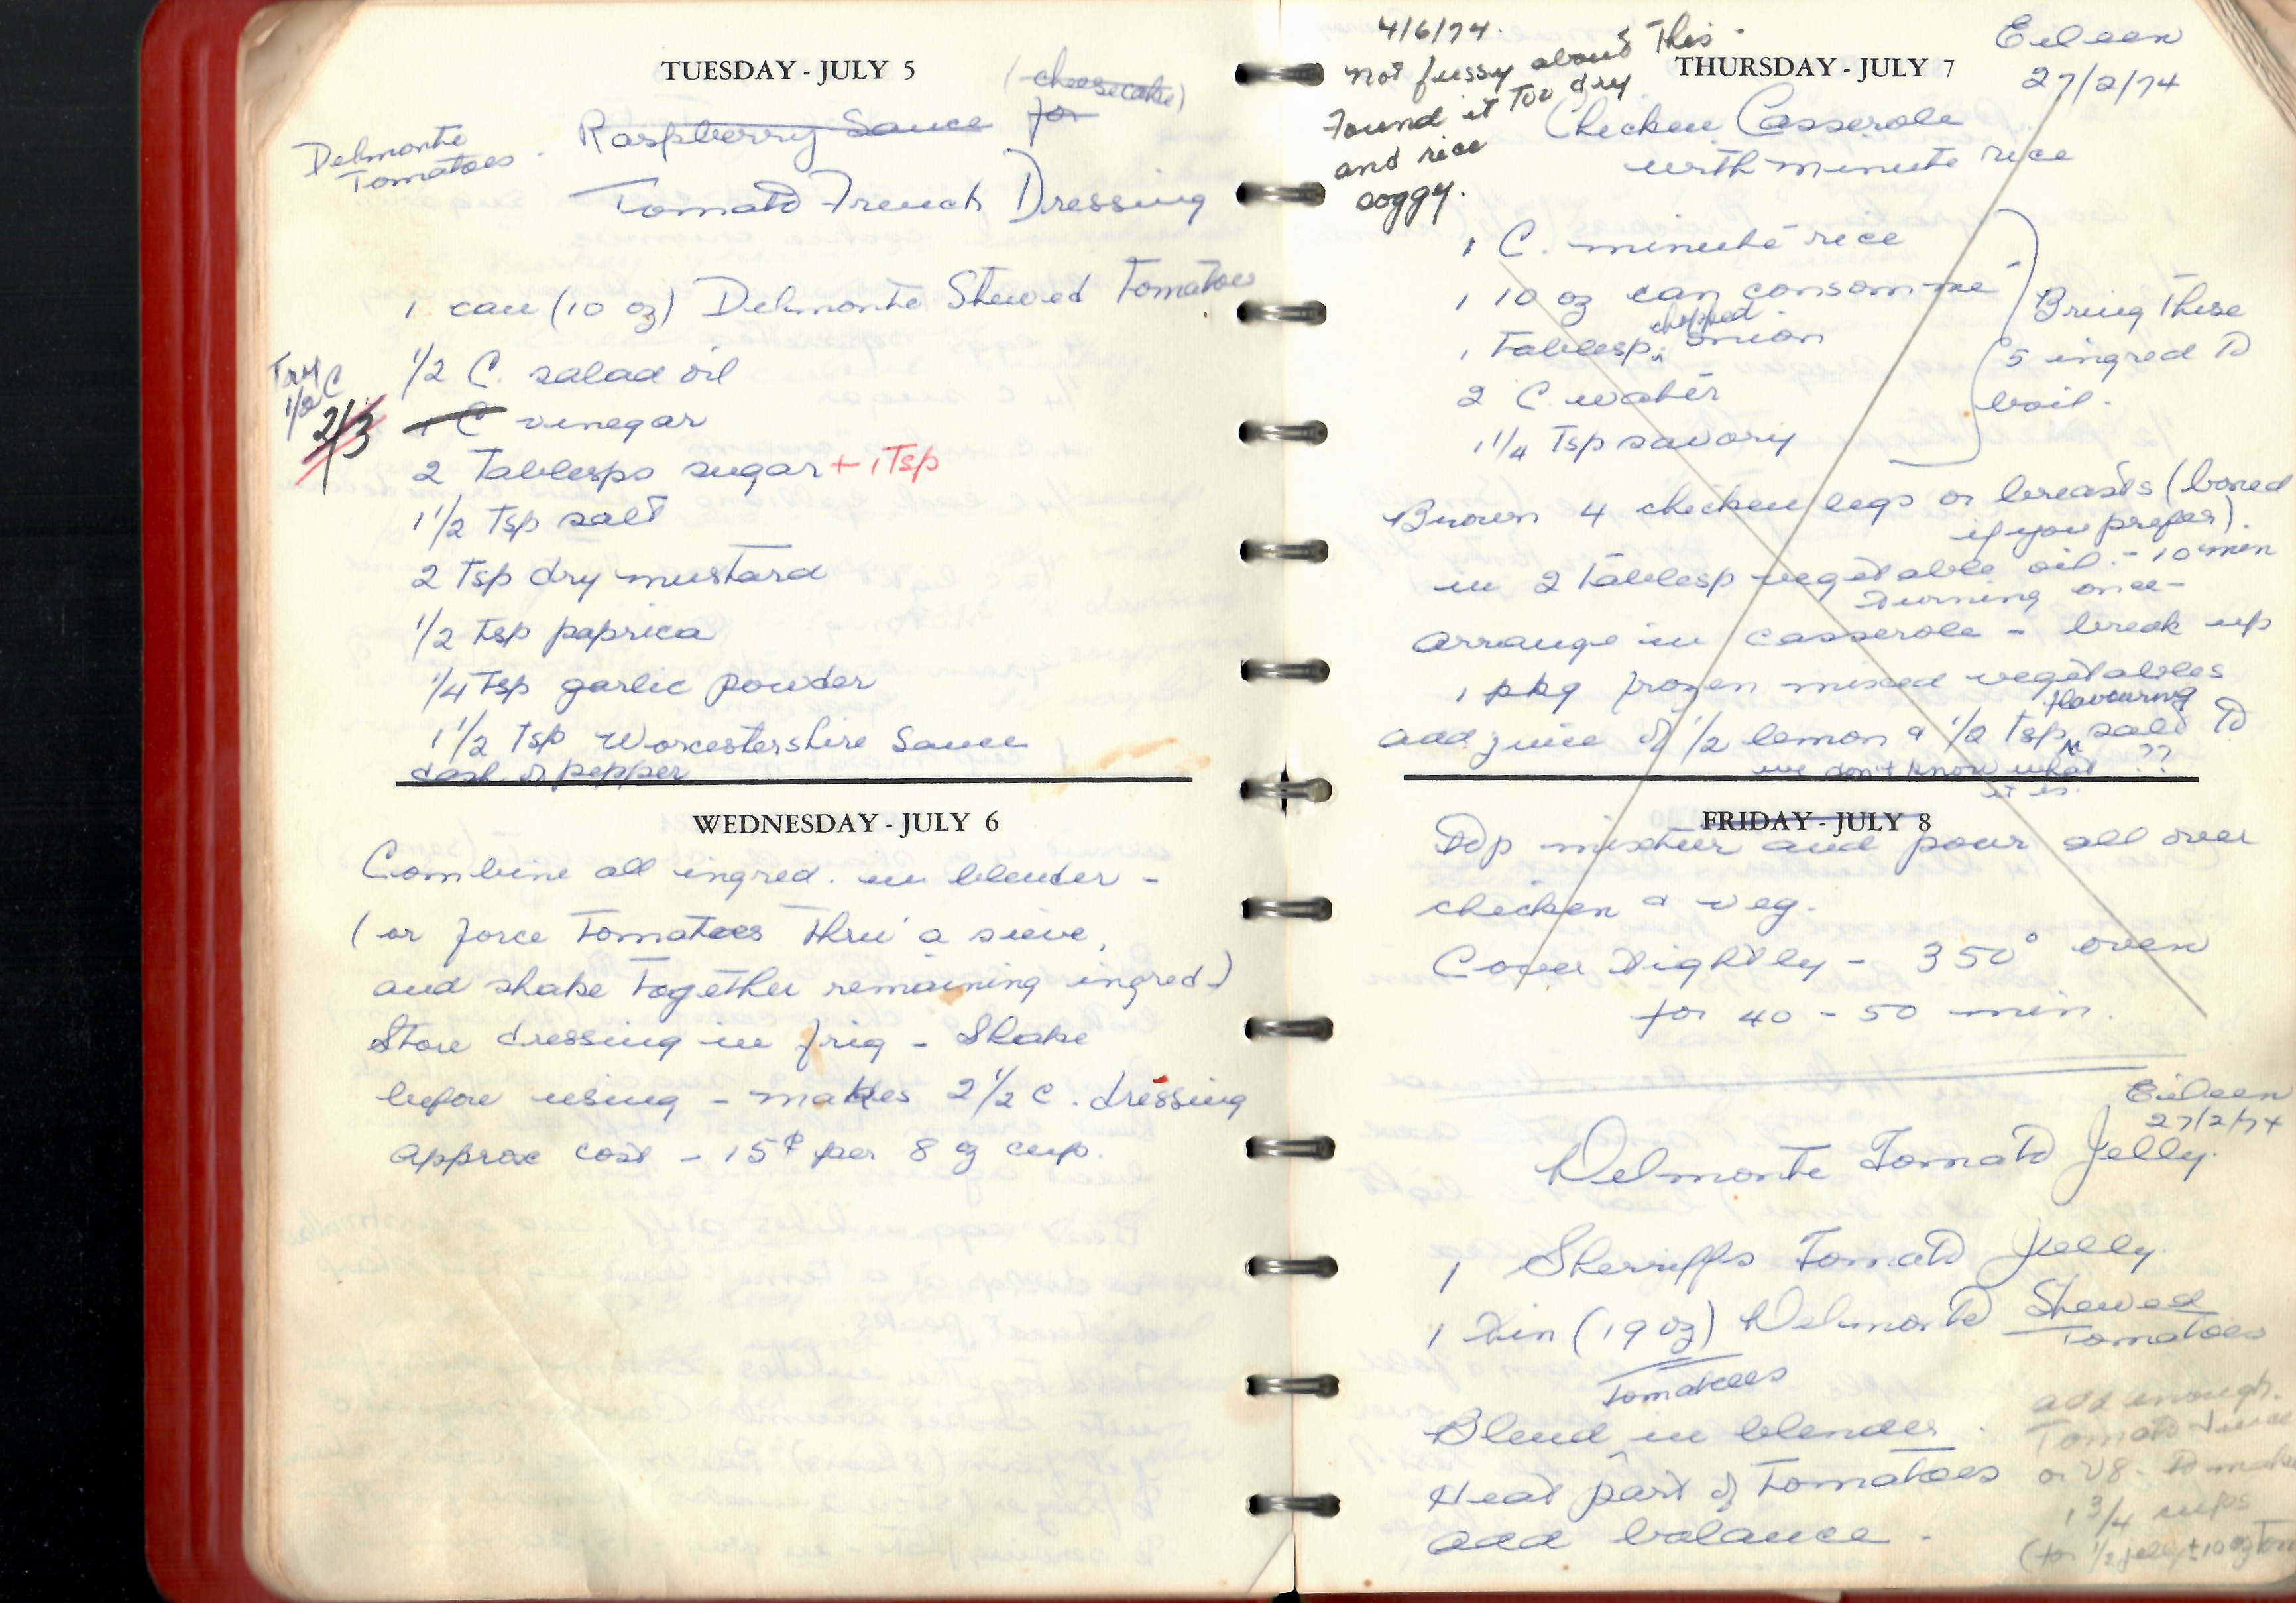 TUESDAY - JULY 5
(cheesecake)
Delmonte
Tomatoes.
Raspberry Sauce for
Tomato French Dressing
1 can (10 oz) Delmonte Stewed Tomatoes
1/2 C. salad oil
Try
1/2 C
2/3
1 C vinegar
2 Tablesps sugar + 1 Tsp
1 1/2 Tsp salt
2 Tsp dry mustard
1/2 Tsp paprica
1/4 Tsp garlic powder
1 1/2 Tsp Worcestershire Sauce
dash of pepper
WEDNESDAY - JULY 6
Combine all ingred. in blender -
(or force Tomatoes Thru' a sieve,
and shake Together remaining ingred.)
Store dressing in frig - Shake
before using - makes 2 1/2 C. dressing
approx cost - 15¢ per 8 oz cup.
4/6/74.
Not fussy about This -
Found it Too dry
and rice
soggy.
THURSDAY - JULY 7
Eileen
27/2/74
Chicken Casserole
with minute rice
1 C. minute rice
1 10 oz can consommé
1 Tablesp. chopped onion
2 C. water
1 1/4 Tsp savory
Bring These
5 ingred To
boil.
Brown 4 chicken legs or breasts (boned
if you prefer).
in 2 Tablesp vegetable oil. - 10 min
Turning once -
arrange in casserole - break up
1 pkg frozen mixed vegetables
flavouring
add juice of 1/2 lemon & 1/2 Tsp salt To
we don't know what ??
it is.
FRIDAY - JULY 8
Top mixture and pour all over
chicken & veg.
Cover Tightly - 350° oven
for 40 - 50 min.
Eileen
27/2/74
Delmonte Tomato Jelly.
1 Sherriffs Tomato Jelly.
1 Tin (19 oz) Delmonte Stewed
Tomatoes
Tomatoes
Blend in blender.
Heat part of Tomatoes
add balance -
add enough
Tomato Juice
or V8 - To make
1 3/4 cups
(for 1/2 jelly + 10 oz Tom